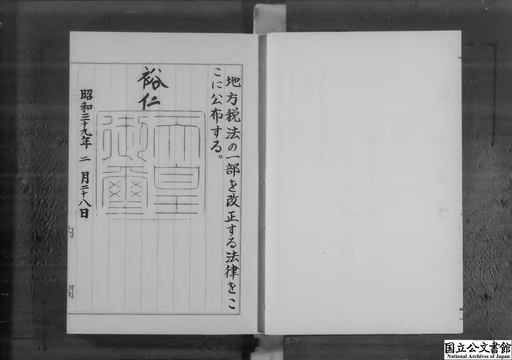 地方税法の一部を改正する法律をこ
こに公布する。
裕仁
天皇
御璽
昭和三十九年二月二十八日
国立公文書館
National Archives of Japan